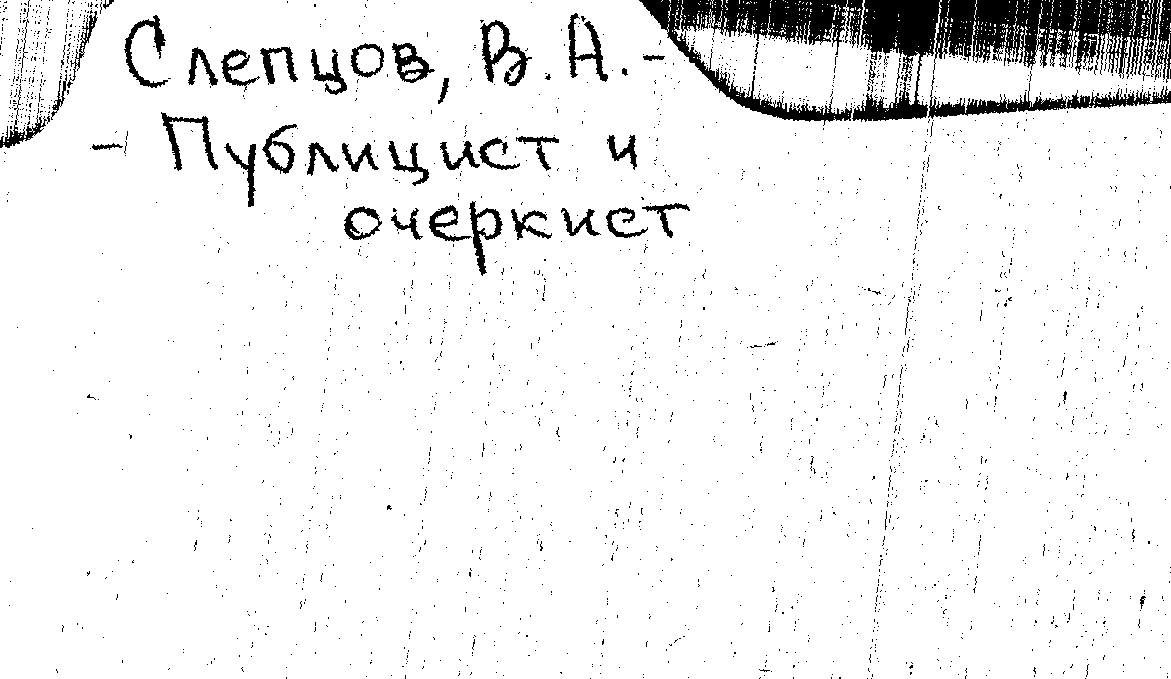 Слепцов, В.А. -
- Публицист и
очеркист